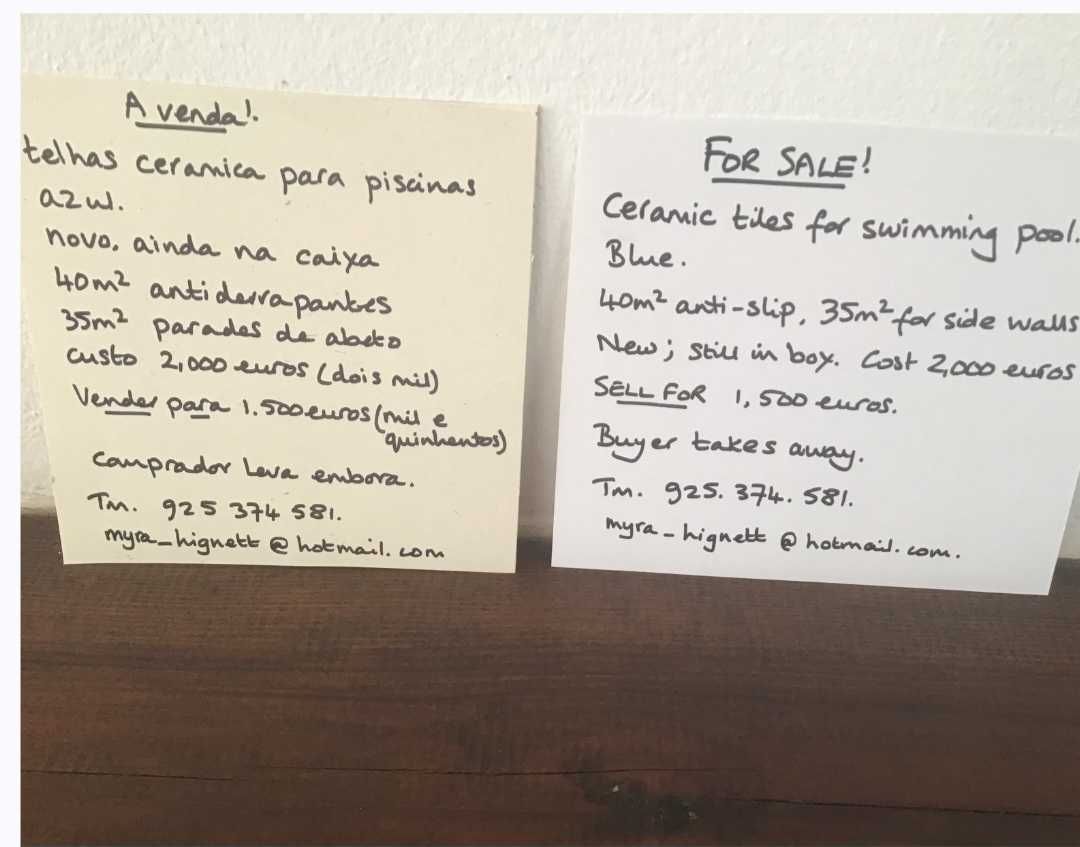 A venda!.
telhas ceramica para piscinas
azul.
novo. ainda na caixa
40m² antiderrapantes
35m² parades de
custo 2,000 euros (dois mil)
Vender para 1.500 euros (mil e
quinhentos)
comprador leva embora.
Tm. 925 374 581.
myra_hignett @ hotmail.com
FOR SALE!
Ceramic tiles for swimming pool.
Blue.
40m² anti-slip, 35m² for side walls
New; still in box. Cost 2,000 euros
SELL FOR 1,500 euros.
Buyer takes away.
Tm. 925. 374. 581.
myra_hignett @ hotmail.com.